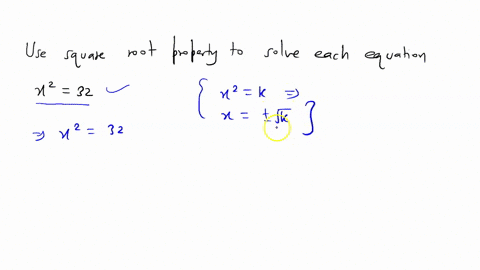 Use square root property to solve each equation
x² = 32 ✓
{ x² = k ⇒
x = ±√k }
⇒ x² = 32